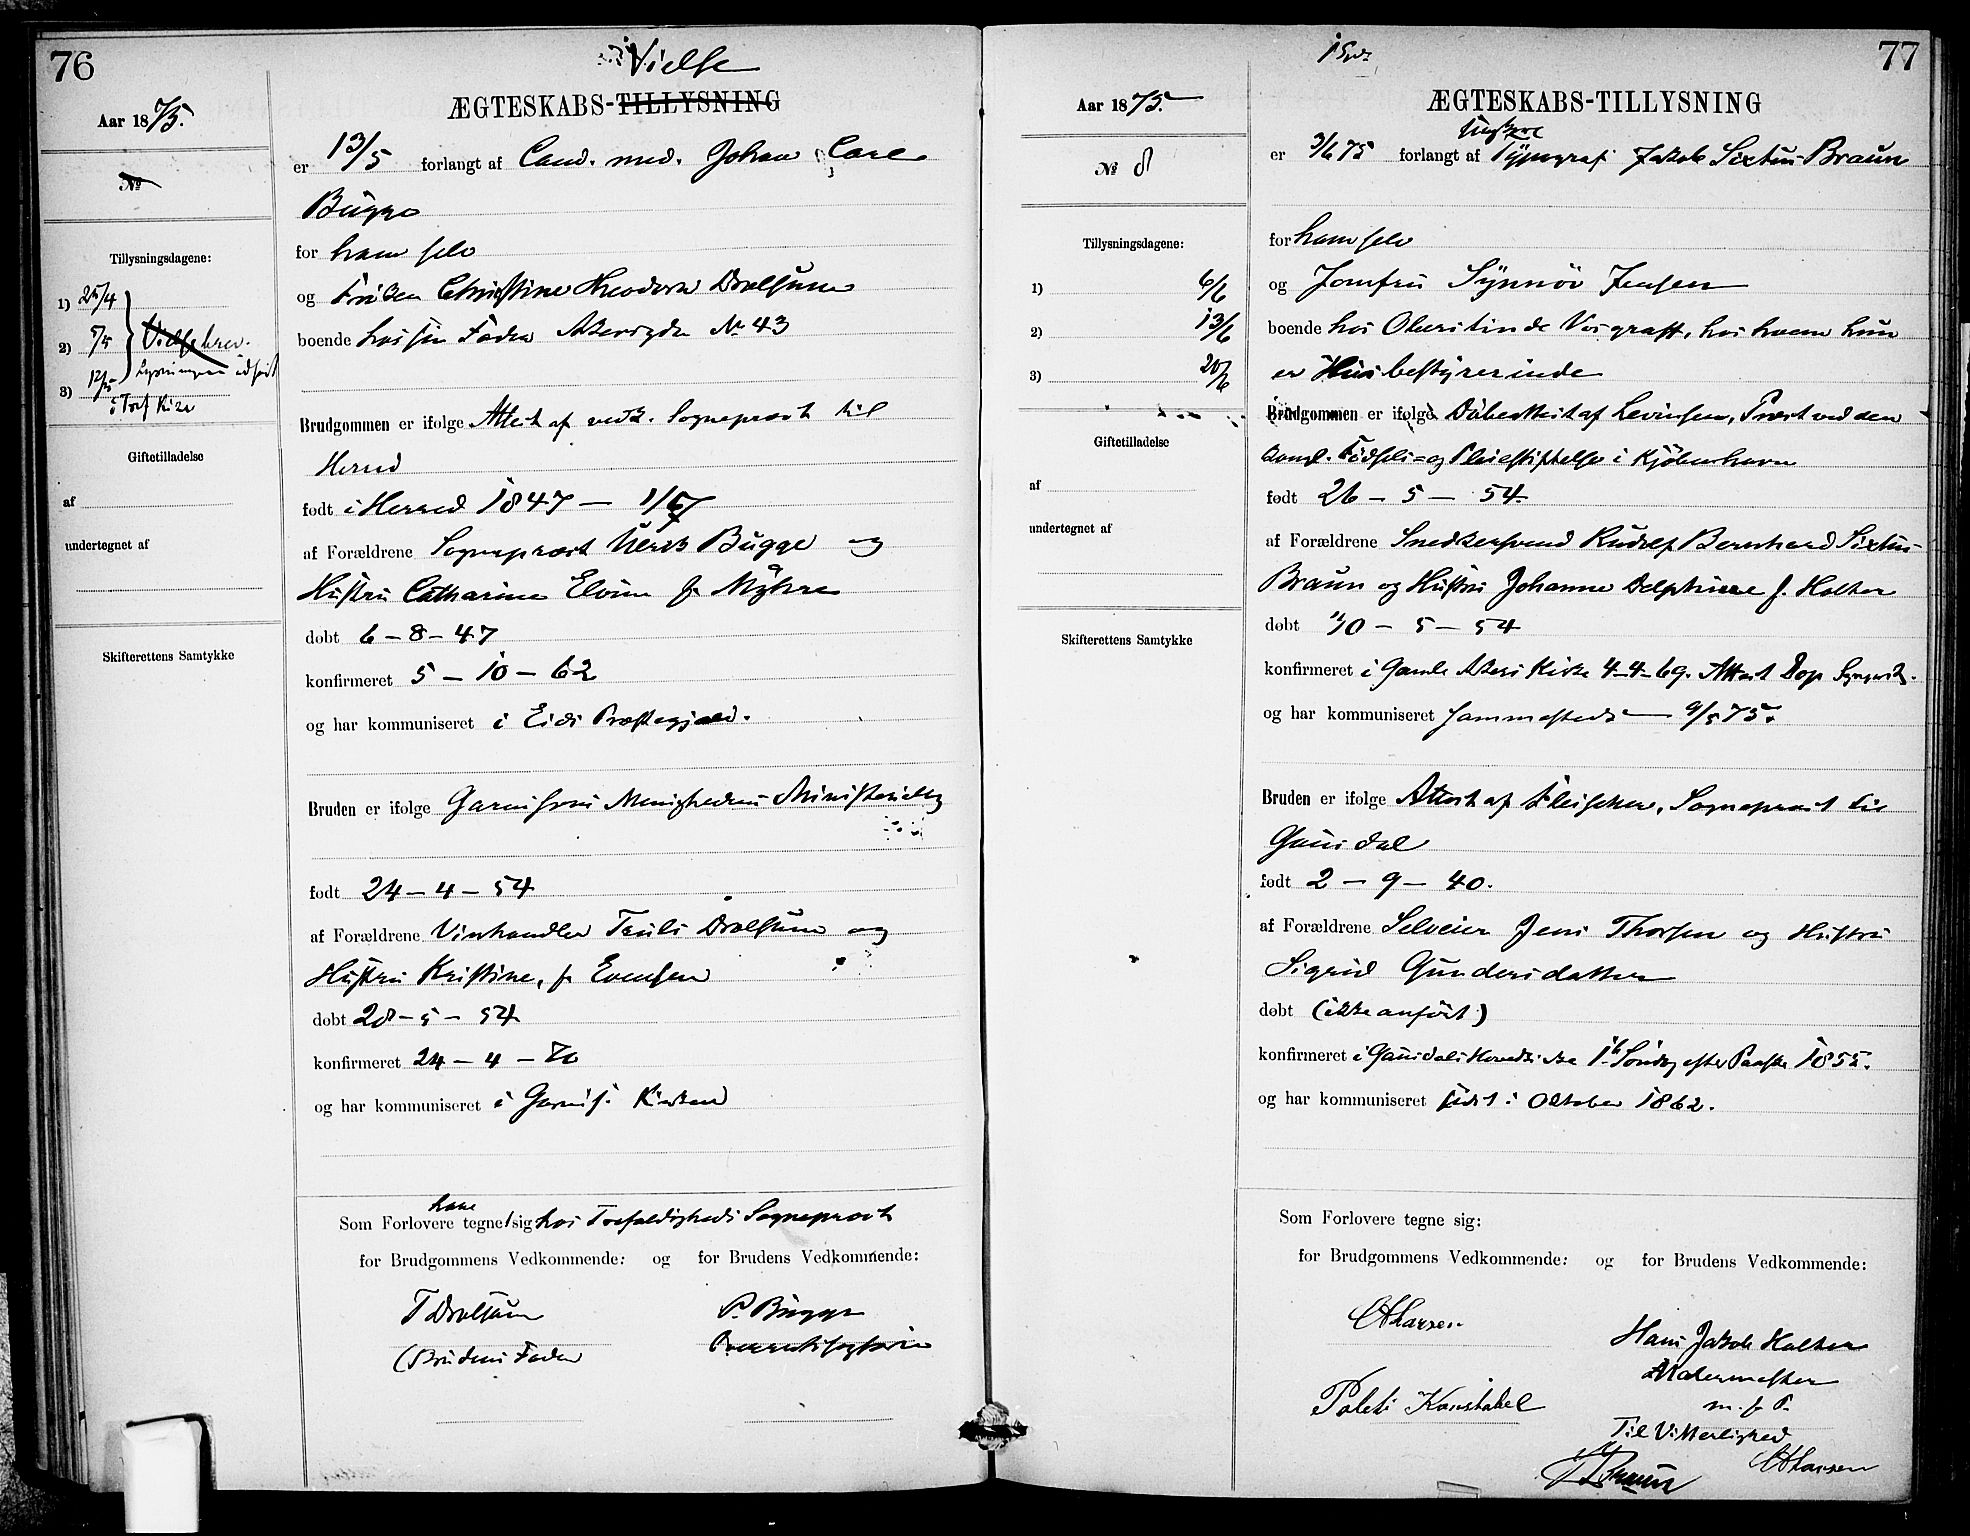 76
Vielse
Aar 1875.
ÆGTESKABS-TILLYSNING
er 13/5 forlangt af Cand. med. Johan Carl
No
Bugge
Tillysningsdagene:
for ham selv
1) 25/4
og Frøken Christine Theodora Dælsum
2) 5/5 Vielsebrev.
boende hos sin Fader No 43
3) 12/5 Lysningen udført
i Tref Kirke
Brudgommen er ifolge Attest af vedk. Sogneprest til
Herred
Giftetilladelse
født i Herred 1847 —
af
af Forældrene Sogneprest Bugge og
undertegnet af
Hustru Catharine Elvine f. Myhre
døbt 6 – 8 – 47
Skifterettens Samtykke
konfirmeret 5 – 10 – 62
og har kommuniseret i Eids Præstegjæld.
Bruden er ifolge Garnisons Menigheds Ministerialbog
født 24 – 4 – 54
af Forældrene Vinhandler Truls Dælsum og
Hustru Kristine, f. Evensen
døbt 28 – 5 – 54
konfirmeret 24 – 4 – 70
og har kommuniseret i Garnis. Kirken
have
Som Forlovere tegne sig hos Trefoldigheds Sogneprest
for Brudgommens Vedkommende: og for Brudens Vedkommende:
T Dælsum
P. Bugge
(Brudens Fader
77
Aar 1875.
ÆGTESKABS-TILLYSNING
Ungkarl
No 8
er 3/6 75 forlangt af Typograf Jakob Sixtus Braun
Tillysningsdagene:
for ham selv
1) 6/6
og Jomfru Synnøv Jensen
2) 13/6
boende hos Oberstinde Vosgraff, hos hvem hun
3) 20/6
er Husbestyrerinde
Brudgommen er ifolge Døbeattest af Levinsen, Præst ved den
Giftetilladelse
kongl. Fødsels- og Pleiestiftelse i Kjöbenhavn
af
født 26 – 5 – 54
undertegnet af
af Forældrene Snedkersvend Rudolf Bernhard Sixtus
Braun og Hustru Johanne Delphine f. Holter
Skifterettens Samtykke
døbt – 5 – 54
konfirmeret i Gamle Akers Kirke 4–4–69. Attest
og har kommuniseret sammesteds — 9/5 75.
Bruden er ifolge Attest af Fleischer, Sogneprest til
Gausdal
født 2 – 9 – 40.
af Forældrene Selveier Jens Thorsen og Hustru
Sigrid Gundersdatter
døbt (ikke anført)
konfirmeret i Gausdals Hovedkirke 1ste Söndag efter Paaske 1855.
og har kommuniseret sidst i Oktober 1862.
Som Forlovere tegne sig:
for Brudgommens Vedkommende: og for Brudens Vedkommende:
CA Larsen
Hans Jakob Holter
Malermester
Politi Konstabel
m. f. P.
Til Vitterlighed
Braun
CA Larsen